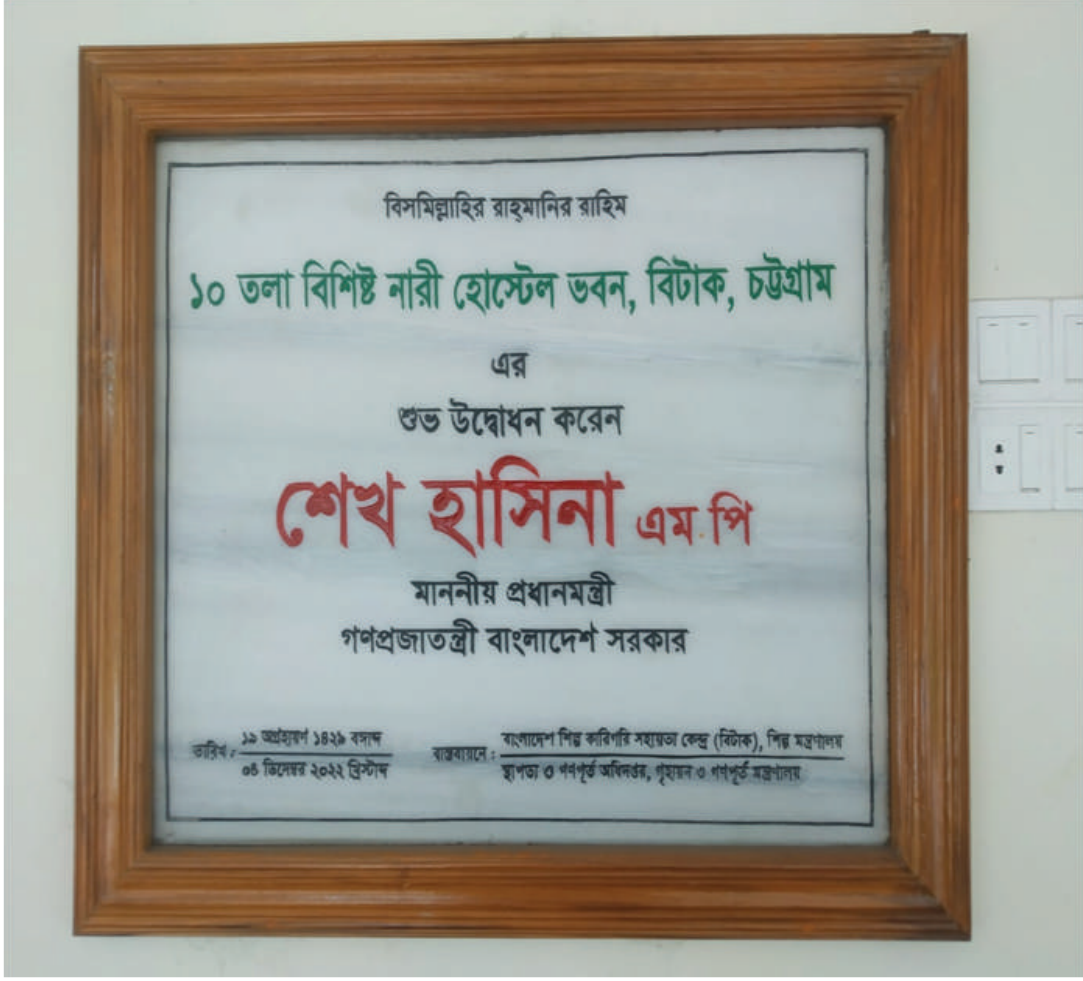 বিসমিল্লাহির রাহমানির রাহিম
১০ তলা বিশিষ্ট নারী হোস্টেল ভবন, বিটাক, চট্টগ্রাম
এর
শুভ উদ্বোধন করেন
শেখ হাসিনা এম.পি
মাননীয় প্রধানমন্ত্রী
গণপ্রজাতন্ত্রী বাংলাদেশ সরকার
তারিখ : ১৯ অগ্রহায়ণ ১৪২৯ বঙ্গাব্দ
০৪ ডিসেম্বর ২০২২ খ্রিস্টাব্দ
বাস্তবায়নে : বাংলাদেশ শিল্প কারিগরি সহায়তা কেন্দ্র (বিটাক), শিল্প মন্ত্রণালয়
স্থাপত্য ও গণপূর্ত অধিদপ্তর, গৃহায়ন ও গণপূর্ত মন্ত্রণালয়